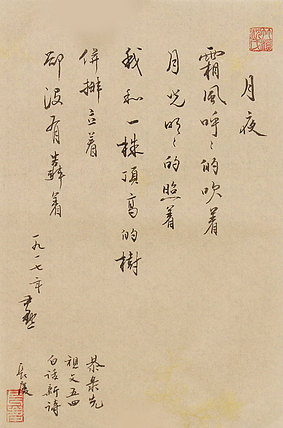 月夜
霜風呼〻的吹着
月光明〻的照着
我和一株頂高的樹
併排立着
卻沒有靠着
一九一七年 尹默
恭录先
祖父五四
白話新詩